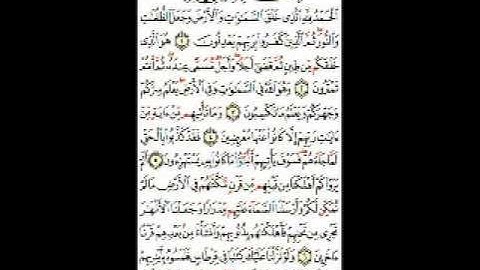 الْحَمْدُ لِلَّهِ الَّذِي خَلَقَ السَّمَٰوَٰتِ وَالْأَرْضَ وَجَعَلَ الظُّلُمَٰتِ
وَالنُّورَ ثُمَّ الَّذِينَ كَفَرُوا بِرَبِّهِمْ يَعْدِلُونَ ١ هُوَ الَّذِي
خَلَقَكُم مِّن طِينٍ ثُمَّ قَضَىٰ أَجَلًا وَأَجَلٌ مُّسَمًّى عِندَهُ ثُمَّ أَنتُمْ
تَمْتَرُونَ ٢ وَهُوَ اللَّهُ فِي السَّمَٰوَٰتِ وَفِي الْأَرْضِ يَعْلَمُ سِرَّكُمْ
وَجَهْرَكُمْ وَيَعْلَمُ مَا تَكْسِبُونَ ٣ وَمَا تَأْتِيهِم مِّنْ ءَايَةٍ مِّنْ
ءَايَٰتِ رَبِّهِمْ إِلَّا كَانُوا عَنْهَا مُعْرِضِينَ ٤ فَقَدْ كَذَّبُوا بِالْحَقِّ
لَمَّا جَاءَهُمْ فَسَوْفَ يَأْتِيهِمْ أَنۢبَٰٓؤُا مَا كَانُوا بِهِ يَسْتَهْزِءُونَ ٥ أَلَمْ
يَرَوْا كَمْ أَهْلَكْنَا مِن قَبْلِهِم مِّن قَرْنٍ مَّكَّنَّٰهُمْ فِي الْأَرْضِ مَا لَمْ
نُمَكِّن لَّكُمْ وَأَرْسَلْنَا السَّمَاءَ عَلَيْهِم مِّدْرَارًا وَجَعَلْنَا الْأَنْهَٰرَ
تَجْرِي مِن تَحْتِهِمْ فَأَهْلَكْنَٰهُم بِذُنُوبِهِمْ وَأَنشَأْنَا مِنۢ بَعْدِهِمْ قَرْنًا
ءَاخَرِينَ ٦ وَلَوْ نَزَّلْنَا عَلَيْكَ كِتَٰبًا فِي قِرْطَاسٍ فَلَمَسُوهُ بِأَيْدِيهِمْ